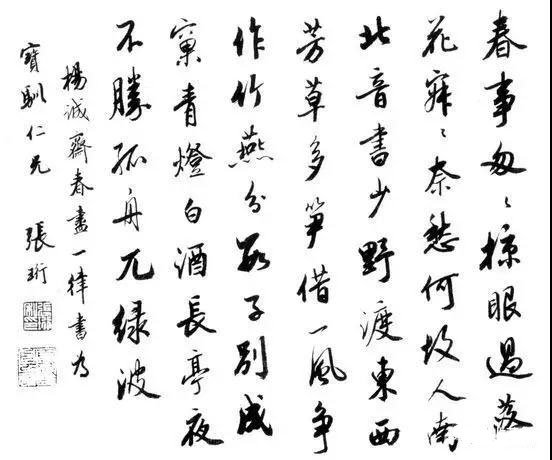 春事匆〻掠眼過落
花寂〻奈愁何故人南
北音書少野渡東西
芳草多笋借一風争
作竹燕分數子别成
窠青燈白酒長亭夜
不勝孤舟兀緑波
楊誠齋春盡一律書為
寶馴仁兄 張珩